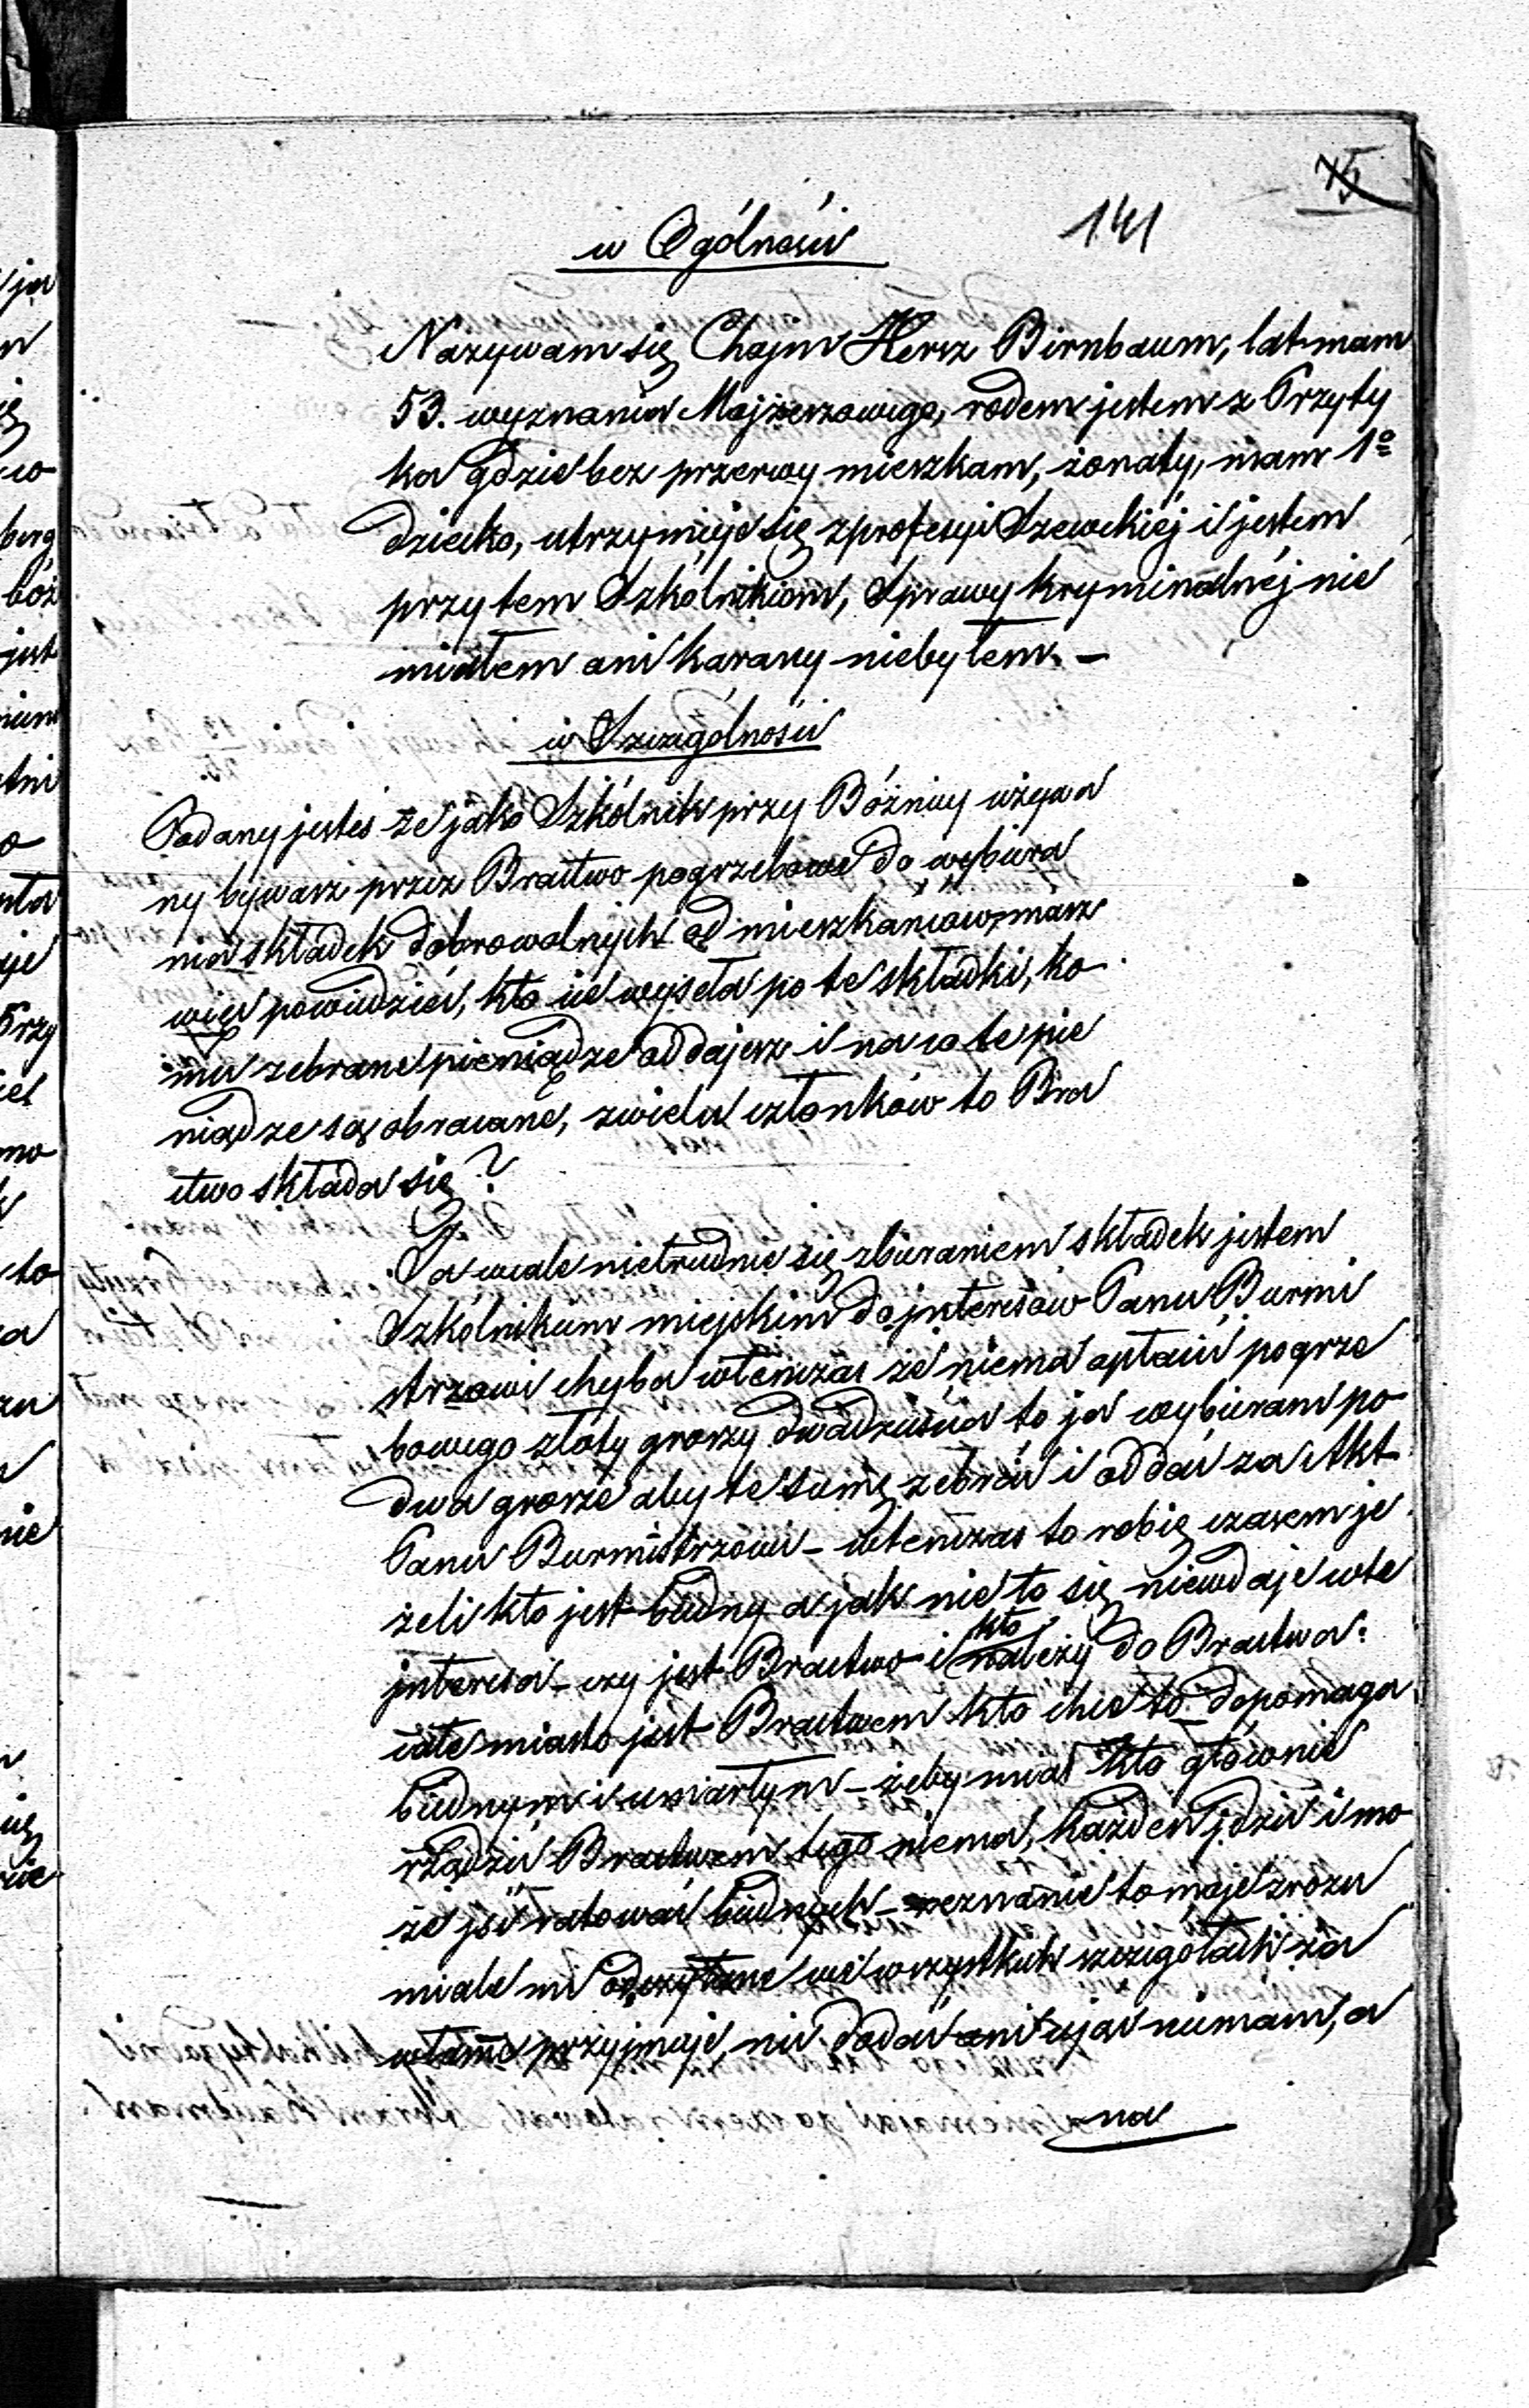 75
141
w Ogólności
Nazywam się Chajm Hersz Birnbaum, lat mam
53. wyznania Mojżeszowego, rodem jestem z Przyty
ka gdzie bez przerwy mieszkam, żonaty, mam 1o
dziecko, utrzymuje się z profesyi Szewckiéj i jestem
przytem Szkólnikiem, Sprawy kryminalnéj nie
miałem ani karany niebyłem. –
w Szczególności
Podany jesteś że jako Szkólnik przy Bóżnicy używa
ny bywasz przez Bractwo pogrzebowe do wybiera
nia składek dobrowolnych od mieszkańców, masz
więc powiedzieć, kto cie wyseła po te składki, ko
mu zebrane pieniądze oddajesz i na co te pie
niądze są obracane, z wielu członków to Bra
ctwo składa się?
Ja wcale nietrudnie się zbieraniem składek jestem
Szkólnikiem miejskim do jnteresów Panu Burmi
strzowi chyba wtenczas że niema opłacić pogrze
bowego złoty groszy dwadzieścia to ja wybieram po
dwa grosze aby te sumę zebrać i oddać za Akt
Panu Burmistrzowi – wtenczas to robię czasem je
żeli kto jest biedny a jak nie to się niewdaje w te
jnteresa – czy jest Bractwo i kto należy do Bractwa:
całe miasto jest Bractwem kto chce to dopomaga
biednym i umarłym – żeby miał kto głównie
rządzić Bractwem tego niema, każden jdzie i mo
że jść ratować biednych – zeznanie to moje zrozu
miale mi odczytane we wszystkich szczegółach za
własne przyjmuje, nic dodać ani ująć niemam, a
na